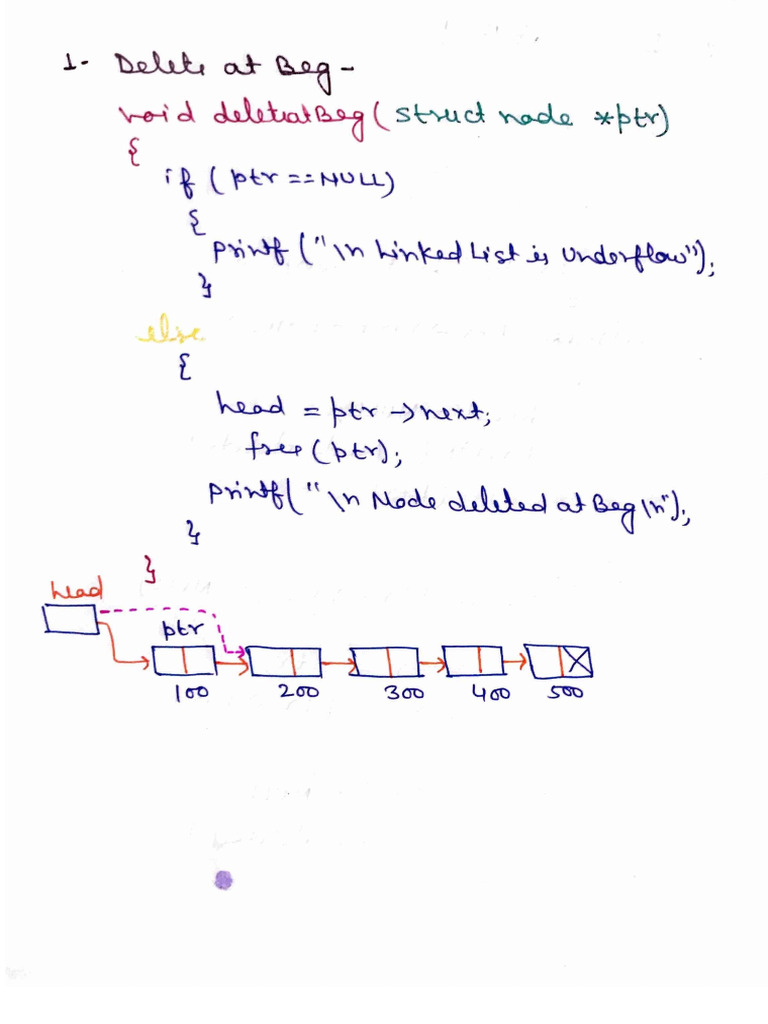 1- Delete at Beg -
void deletatBeg( struct node *ptr)
{
if ( ptr == NULL)
{
printf ("\n Linked List is Underflow");
}
else
{
head = ptr -> next;
free (ptr);
printf( "\n Node deleted at Beg \n");
}
}
head
ptr
100 200 300 400 500